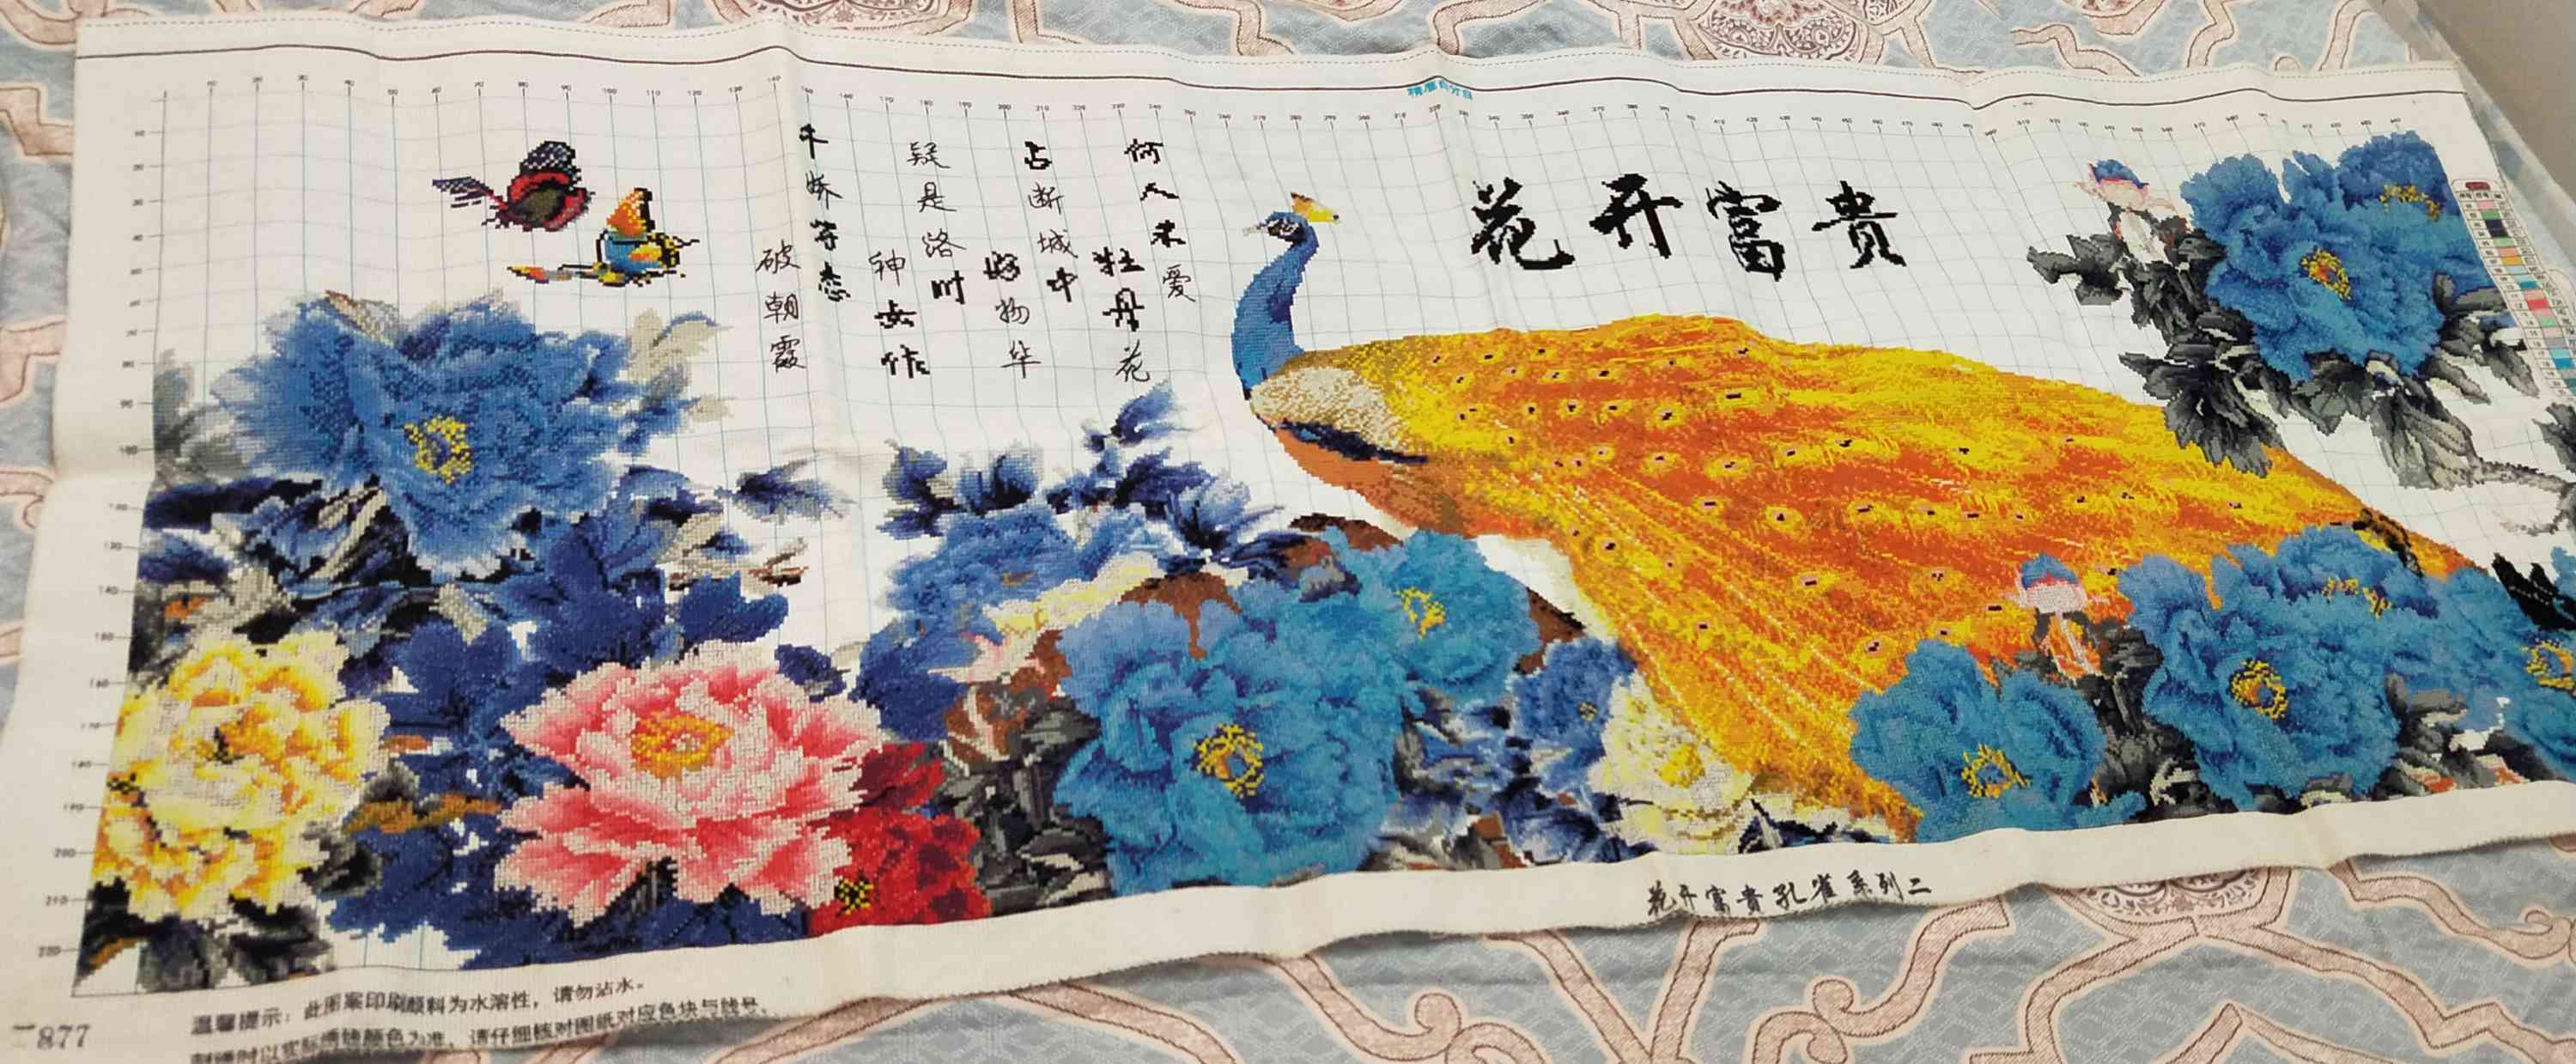 花开富贵
何人不爱
牡丹花
占断城中
好物华
疑是洛川
神女作
千娇万态
破朝霞
花开富贵孔雀系列二
温馨提示：此图案印刷颜料为水溶性，请勿沾水。
请仔细核对图纸对应色块与线号，
877